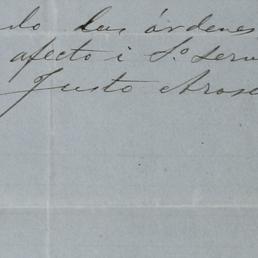 do las órdenes
afecto i S.º serv
Justo Arose